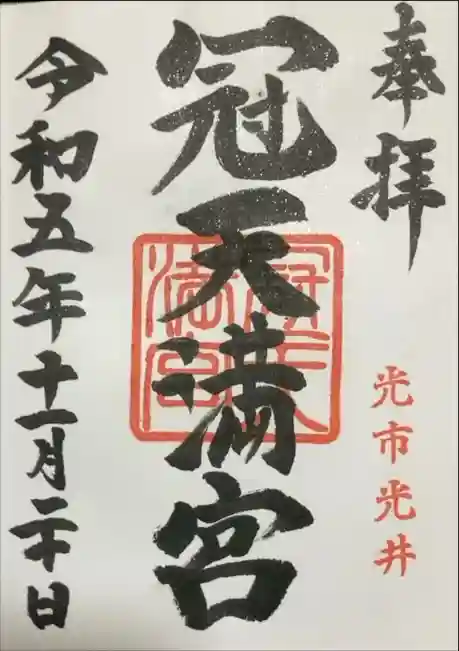 奉拝
光市光井
冠天満宮
冠天
満宮
令和五年十一月二十日